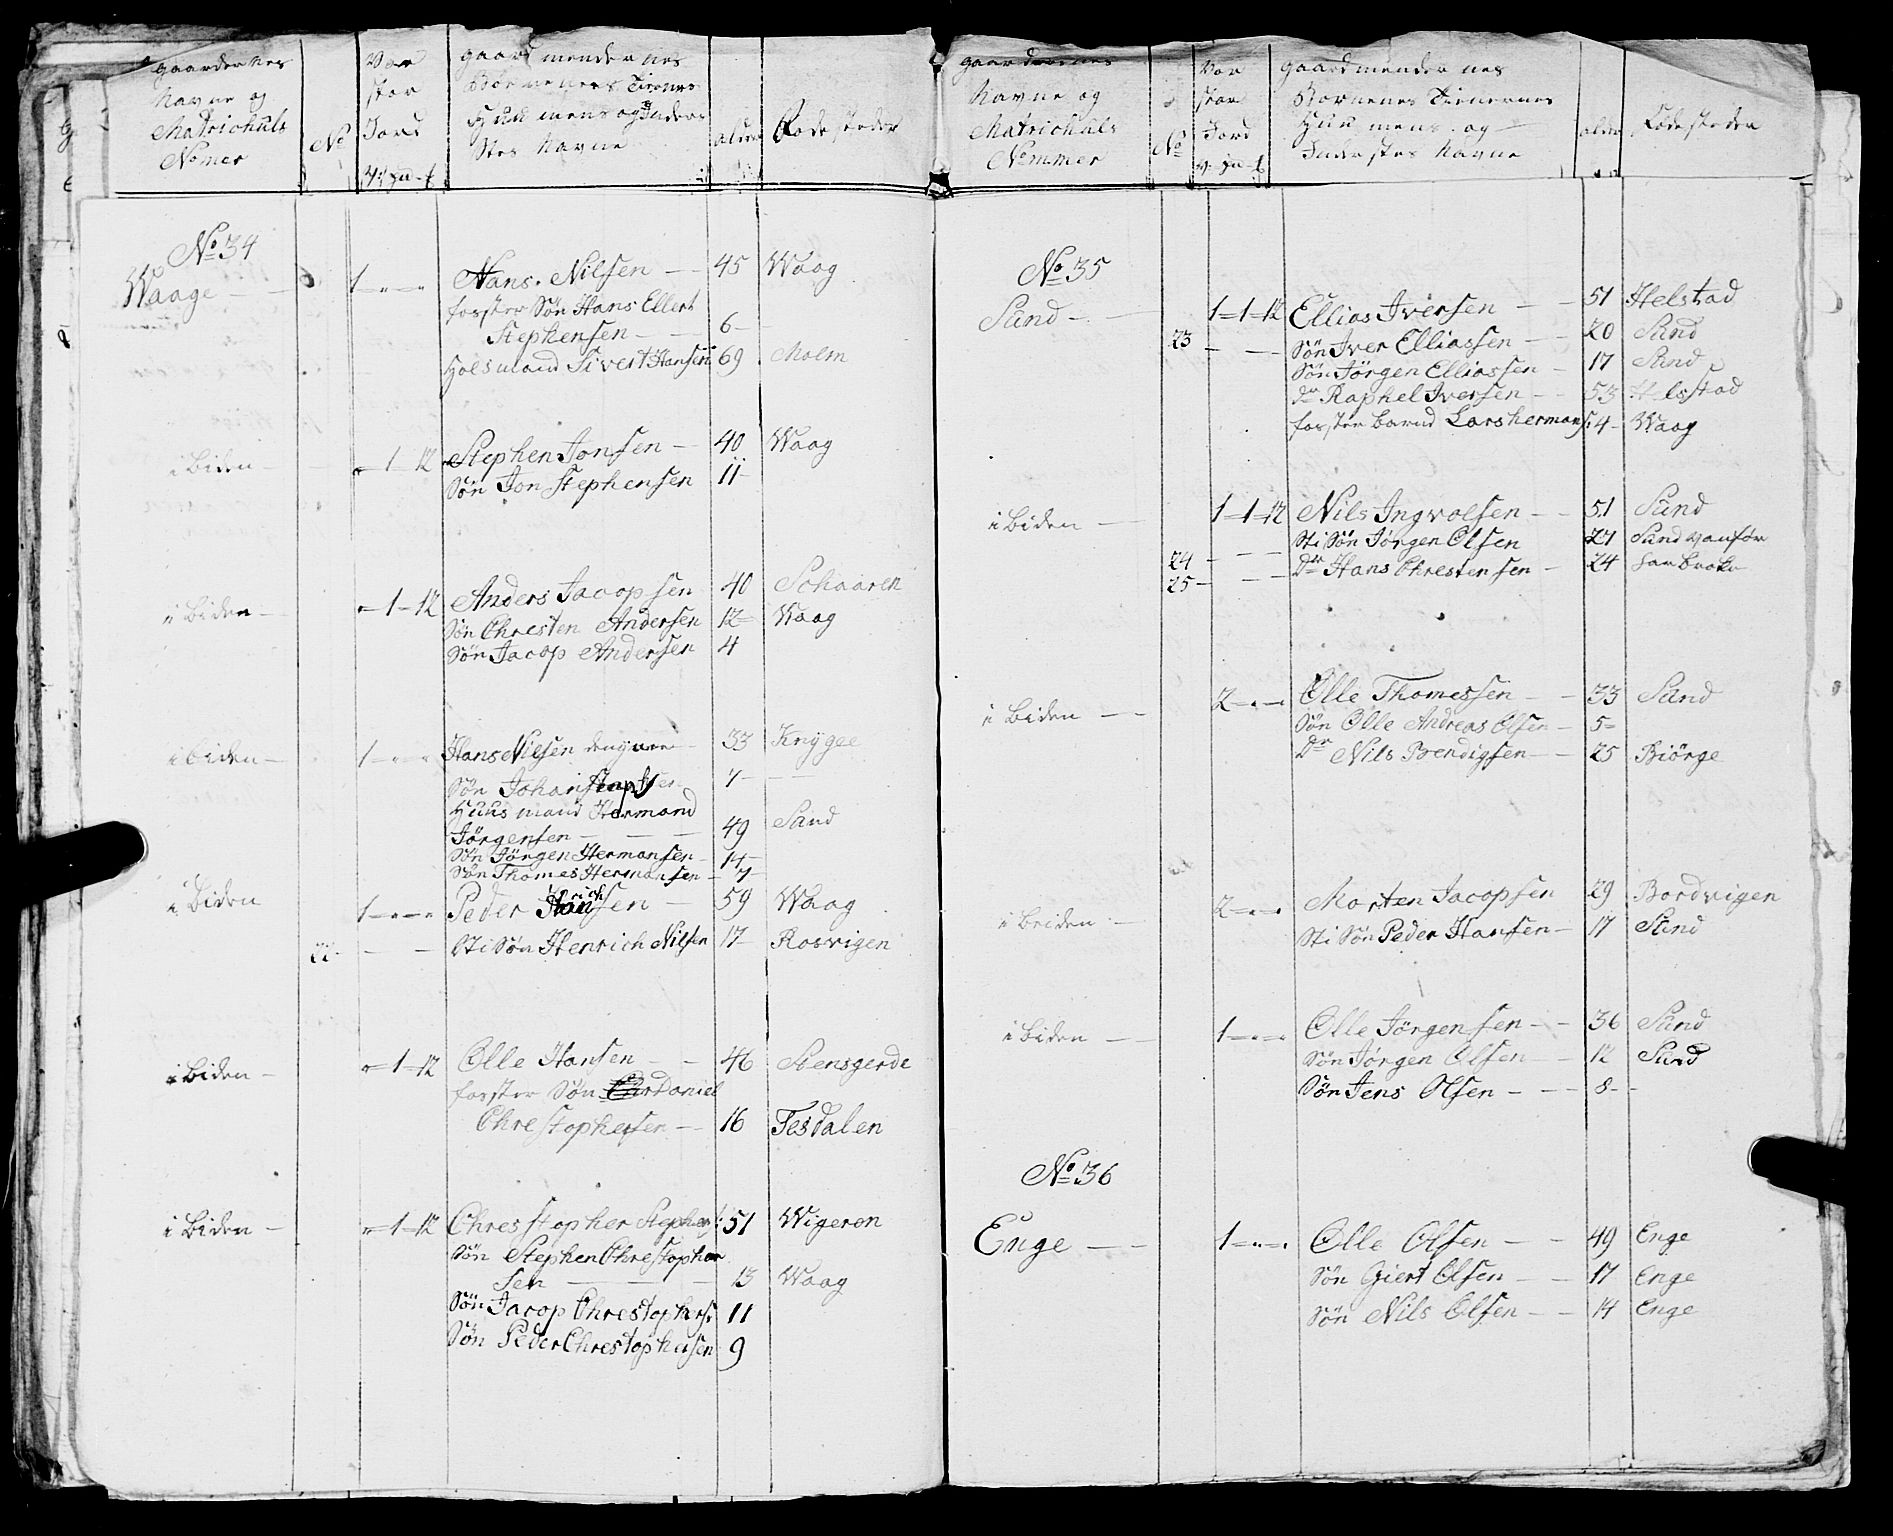 gaardernes
Navne og
Matrichuls
Nomer
No
Vor
stor
Jord
gaardmendernes
Børneners Tieners
Huusmens og Inders
Stes Navne
alder
Føde steder
No 34
Waage
1
Hans Nilsen 45 Waag
foster Søn Hans Ellert
Stephensen 6
Sivert Hansen 69 Molm
i Biden 1 12 Stephen Jonsen 40 Waag
Søn Jon Stephensen 11
i Biden 1 12 Anders Jacopsen 40 Schaaren
Søn Chresten Andersen 12 Waag
Søn Jacop Andersen 4
i Biden 1 Hans Nilsen 33 Knygee
Søn Johan
Huusmand Hermand
Jørgensen 49 Sand
Søn Jørgen Hermansen 14
Søn Thomes Hermansen 7
i Biden 1 Peder 59 Waag
22 Sti Søn Henrich Nilsen 17 Rosvigen
i Biden 1 12 Olle Hansen 46 Stensgerde
foster Søn Daniel
Chrestophersen 16 Tesdalen
i Biden 1 12 Chresstopher Stephens: 51 Wigeron
Søn Stephen Chrestopher
sen 13 Waag
Søn Jacop Chrestophers 11
Søn Peder Chrestophersen 9
gaardernes
Navne og
Matrichuls
Nommer
No
Vor
stor
Jord
gaardmendernes
Børnenes Tienernes
Huusmens og
Inderstes Navne
alder
Fødesteder
No 35
Sund 1 1 12 Ellias Iversen 51 Helstad
23 Søn Iver Elliassen 20 Sund
Søn Jørgen Elliassen 17 Sund
dr Raphel Iversen 53 Helstad
foster barnd Lars hermans: 4 Waag
i Biden 1 1 12 Nils Ingvolsen 51 Sund
24 Sti Søn Jørgen Olsen 27 Sund vanfør
25 Dr Hans Chrestensen 24
i Biden 2 Olle Thomessen 33 Sund
Søn Olle Andreas Olsen 5
Dr Nils Bendigsen 25 Biørge
i Beiden 2 Morten Jacopsen 29 Bordvigen
Sti Søn Peder Hansen 17 Sund
i Biden 1 Olle Jørgensen 36 Sund
Søn Jørgen Olsen 12 Sund
Søn Jens Olsen 8
No 36
Enge 1 Olle Olsen 49 Enge
Søn Giert Olsen 17 Enge
Søn Nils Olsen 14 Enge